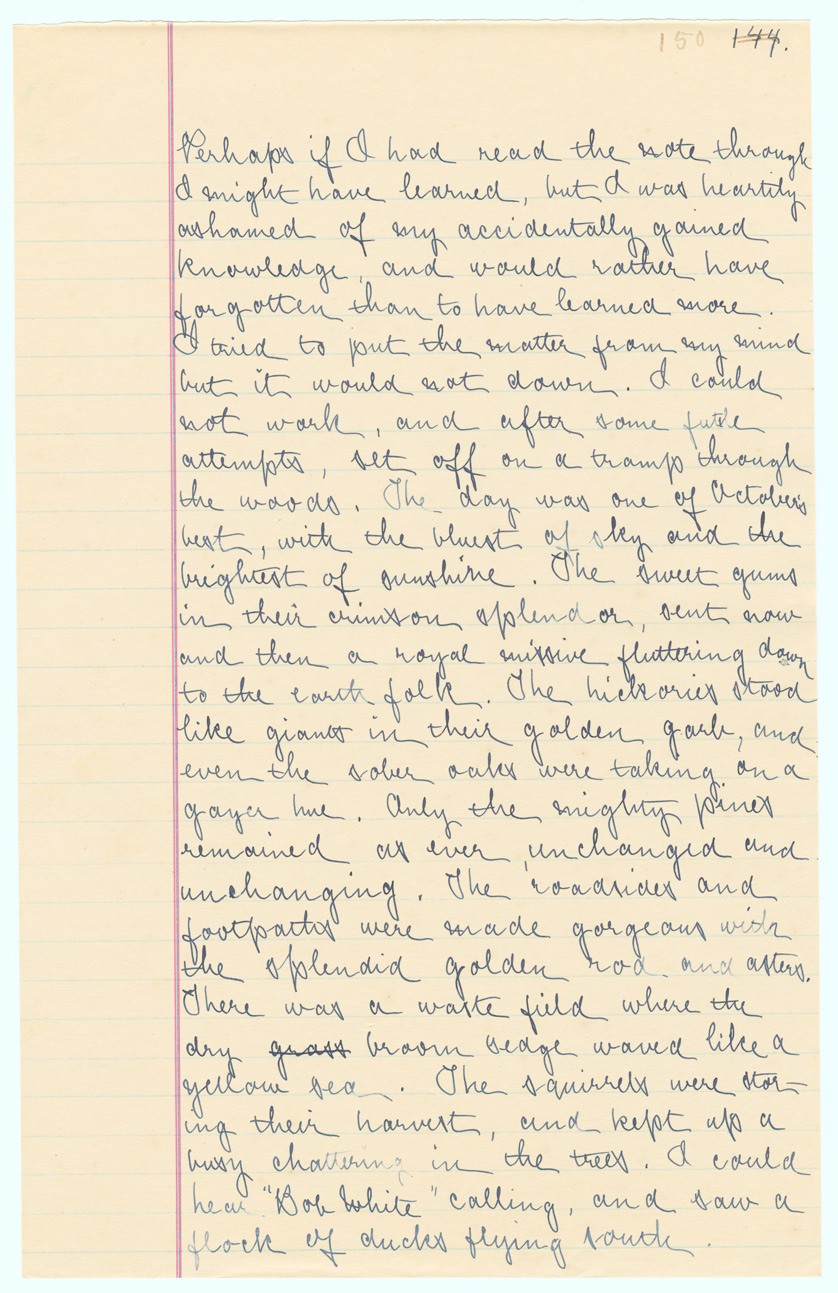 150 144.
Perhaps if I had read the note through
I might have learned, but I was heartily
ashamed of my accidentally gained
knowledge, and would rather have
forgotten than to have learned more.
I tried to put the matter from my mind
but it would not down. I could
not work, and after some futile
attempts, set off on a tramp through
the woods. The day was one of October's
best, with the bluest of sky and the
brightest of sunshine. The sweet gums
in their crimson splendor, sent now
and then a royal missive fluttering down
to the earth folk. The hickories stood
like giants in their golden garb, and
even the sober oaks were taking on a
gayer hue. Only the mighty pines
remained as ever, unchanged and
unchanging. The roadsides and
footpaths were made gorgeous with
the splendid golden rod and asters.
There was a waste field where the
dry grass broom sedge waved like a
yellow sea. The squirrels were stor-
ing their harvest, and kept up a
busy chattering in the trees. I could
hear "Bob White" calling, and saw a
flock of ducks flying south.